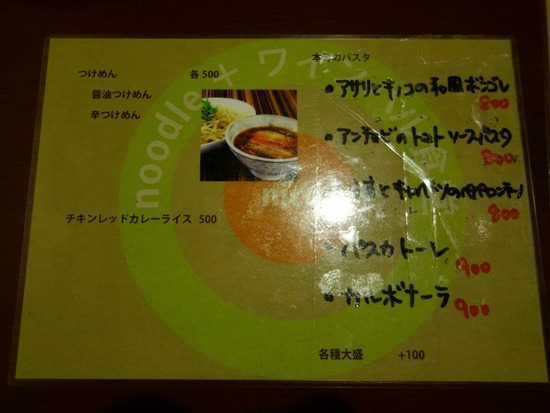 つけめん 各 500
醤油つけめん
辛つけめん
チキンレッドカレーライス 500
パスタ
●アサリとキノコの和風ボンゴレ
800
●アンチョビのトマトソースパスタ
800
キャベツのペペロンチーノ
800
●ペスカトーレ
900
●カルボナーラ
900
各種大盛 +100
noodle+